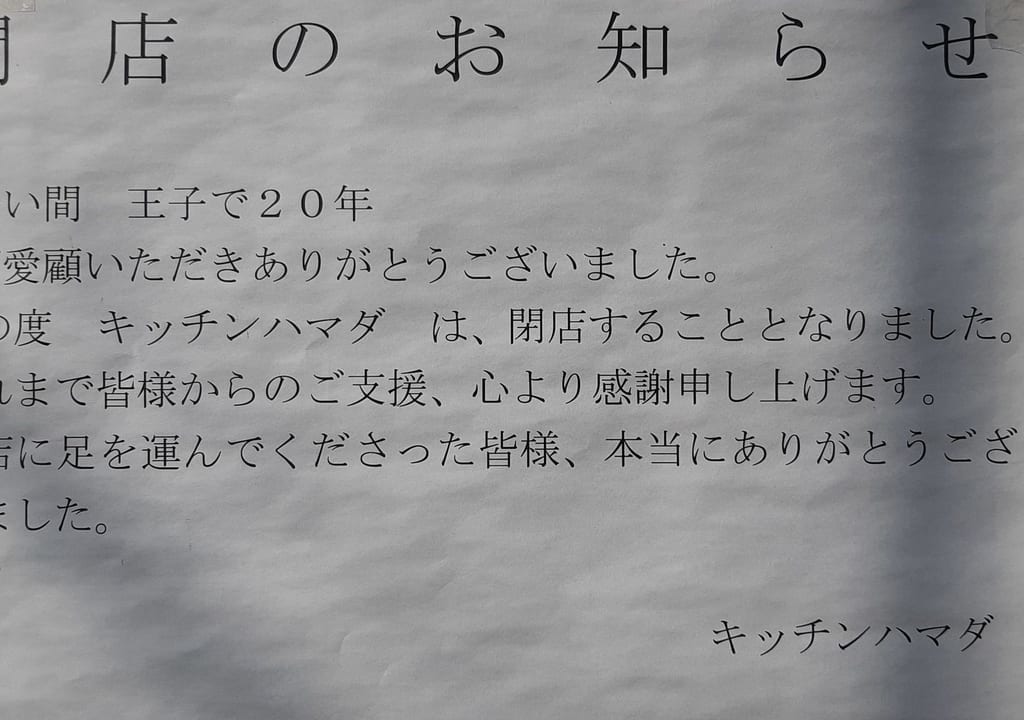 店のお知らせ
い間　王子で２０年
愛顧いただきありがとうございました。
の度　キッチンハマダ　は、閉店することとなりました。
れまで皆様からのご支援、心より感謝申し上げます。
店に足を運んでくださった皆様、本当にありがとうござ
ました。
キッチンハマダ